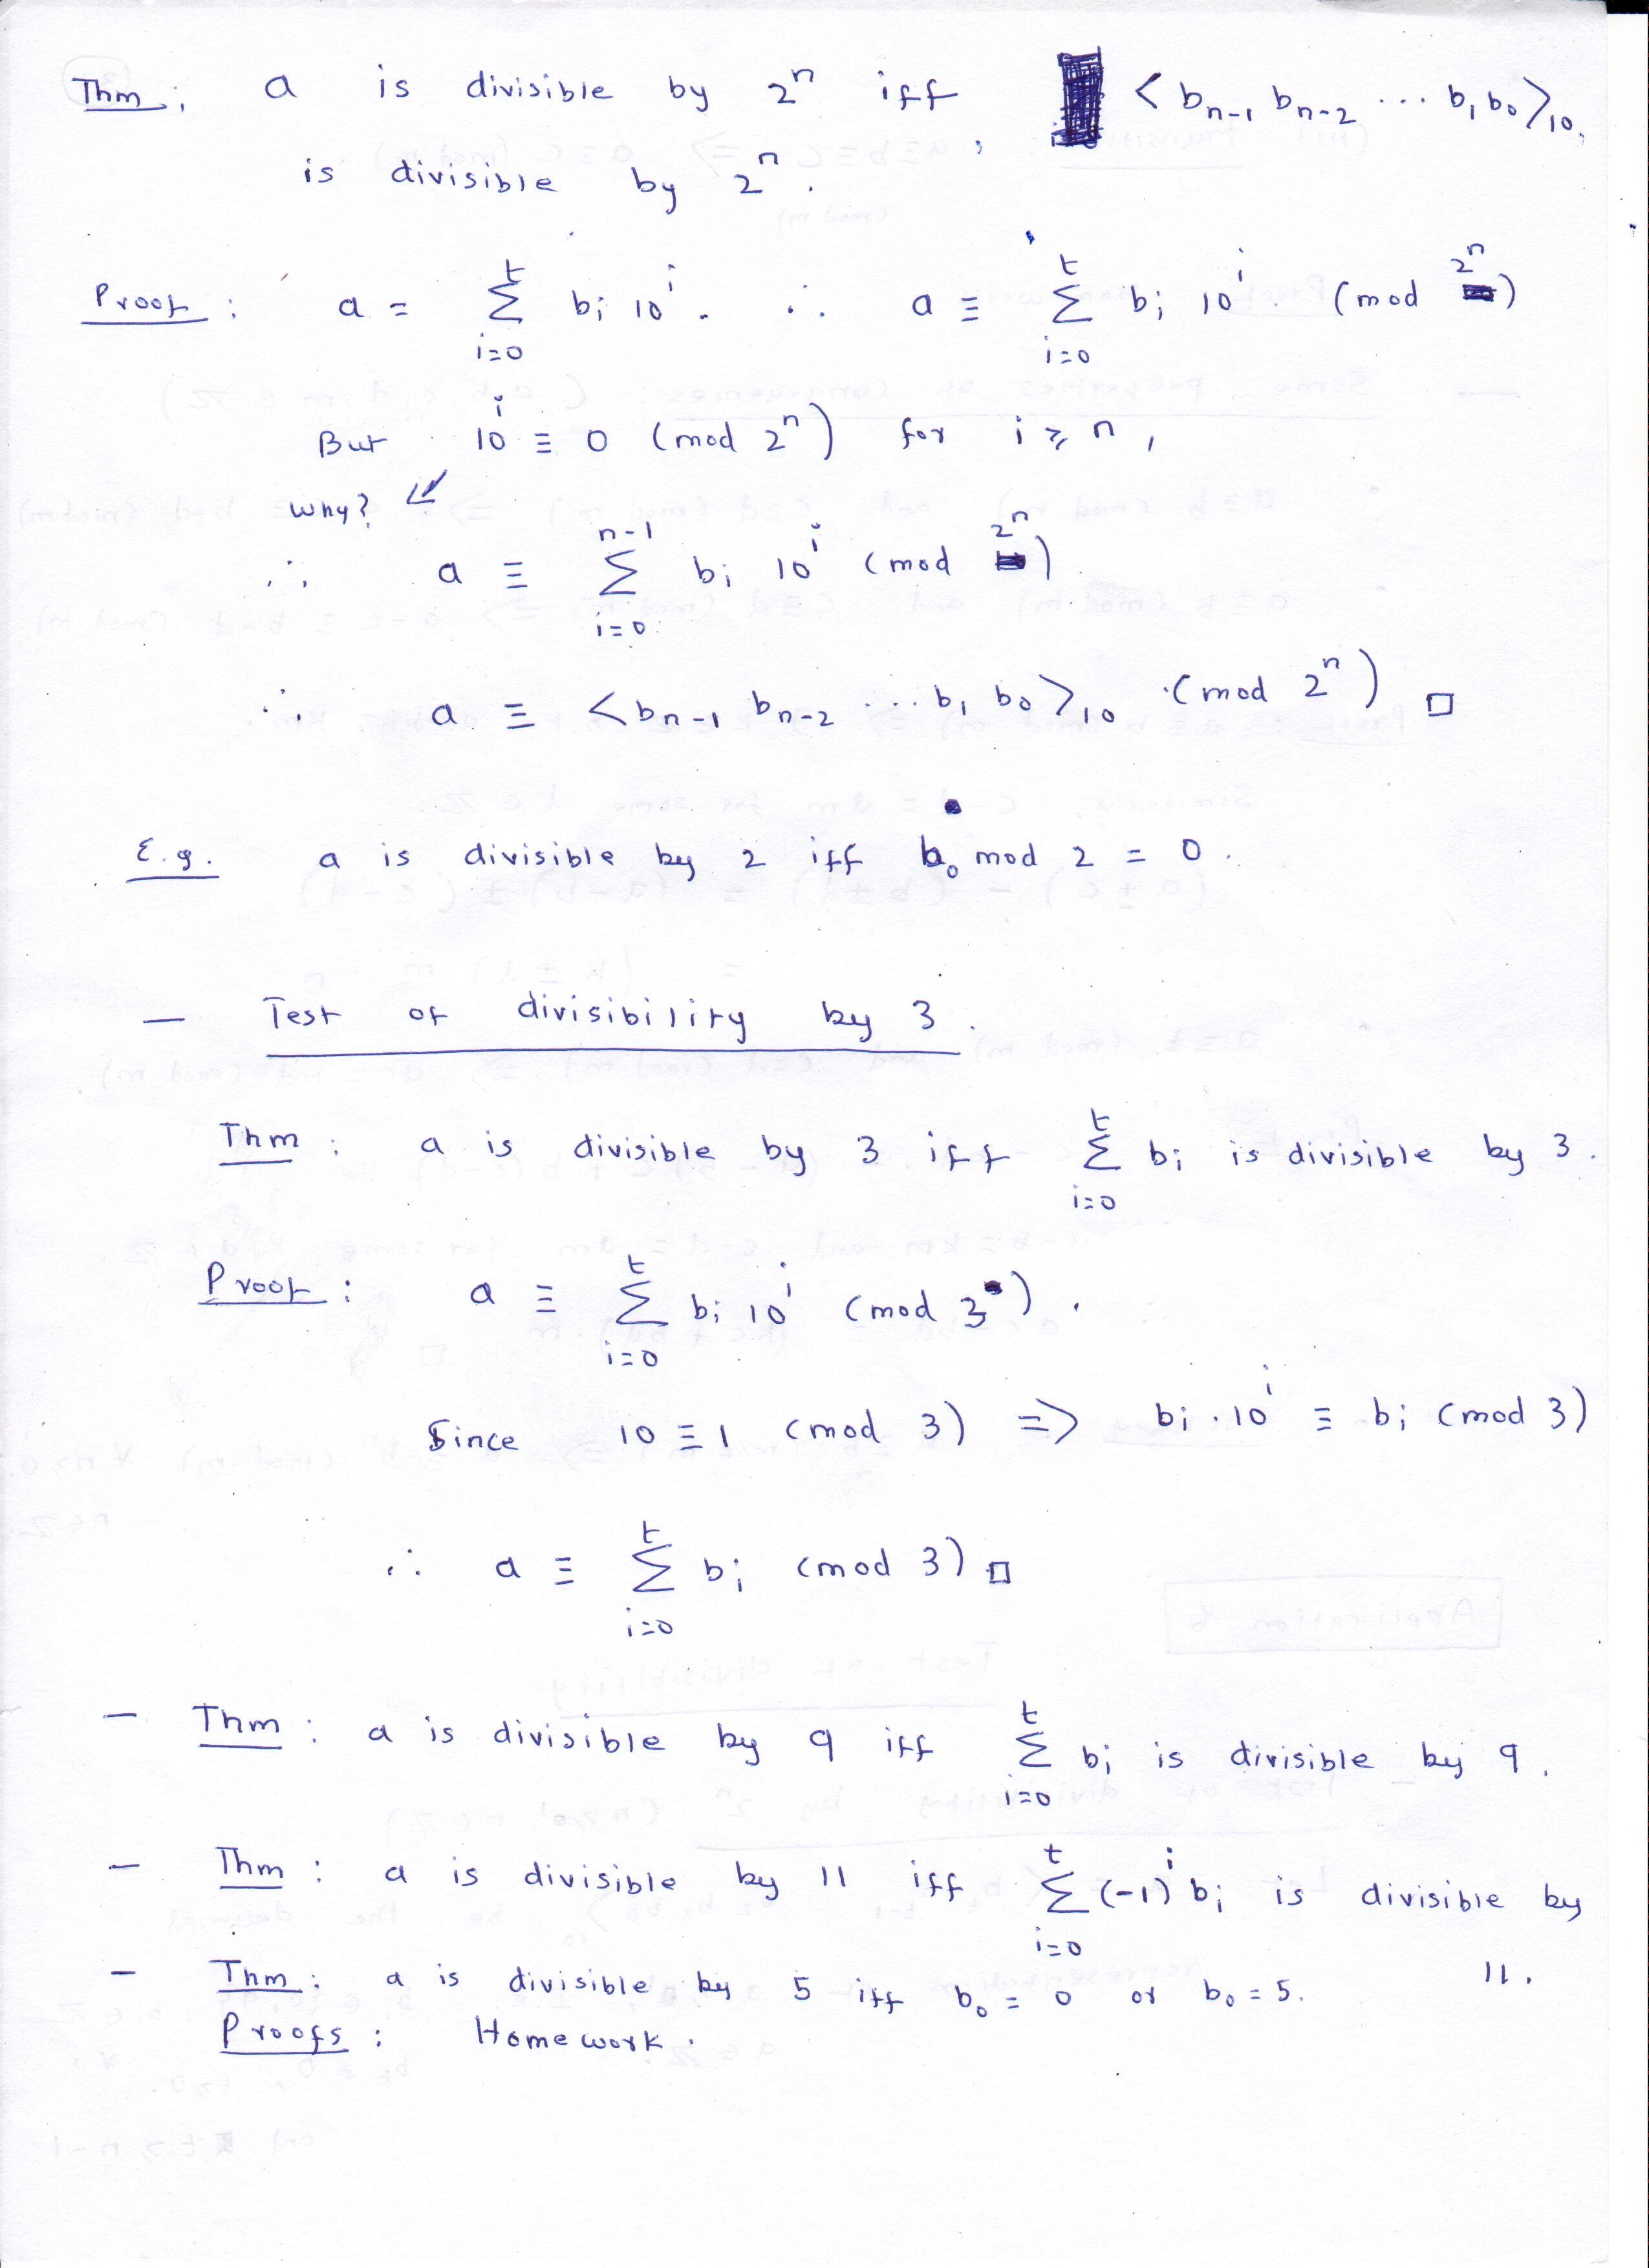 Thm: a is divisible by 2^n iff < b_{n-1} b_{n-2} ... b_1 b_0 >_{10}
is divisible by 2^n.
Proof: a = ∑_{i=0}^{t} b_i 10^i. ∴ a ≡ ∑_{i=0}^{t} b_i 10^i. (mod 2^n)
But 10^i ≡ 0 (mod 2^n) for i ≥ n,
why? ↙
∴ a ≡ ∑_{i=0}^{n-1} b_i 10^i (mod 2^n)
∴ a ≡ < b_{n-1} b_{n-2} ... b_1 b_0 >_{10} (mod 2^n) □
E.g. a is divisible by 2 iff b_0 mod 2 = 0.
— Test of divisibility by 3.
Thm: a is divisible by 3 iff ∑_{i=0}^{t} b_i is divisible by 3.
Proof: a ≡ ∑_{i=0}^{t} b_i 10^i (mod 3).
Since 10 ≡ 1 (mod 3) => b_i . 10^i ≡ b_i (mod 3)
∴ a ≡ ∑_{i=0}^{t} b_i (mod 3) □
— Thm: a is divisible by 9 iff ∑_{i=0}^{t} b_i is divisible by 9.
— Thm: a is divisible by 11 iff ∑_{i=0}^{t} (-1)^i b_i is divisible by
11.
— Thm: a is divisible by 5 iff b_0 = 0 or b_0 = 5.
Proofs: Homework.